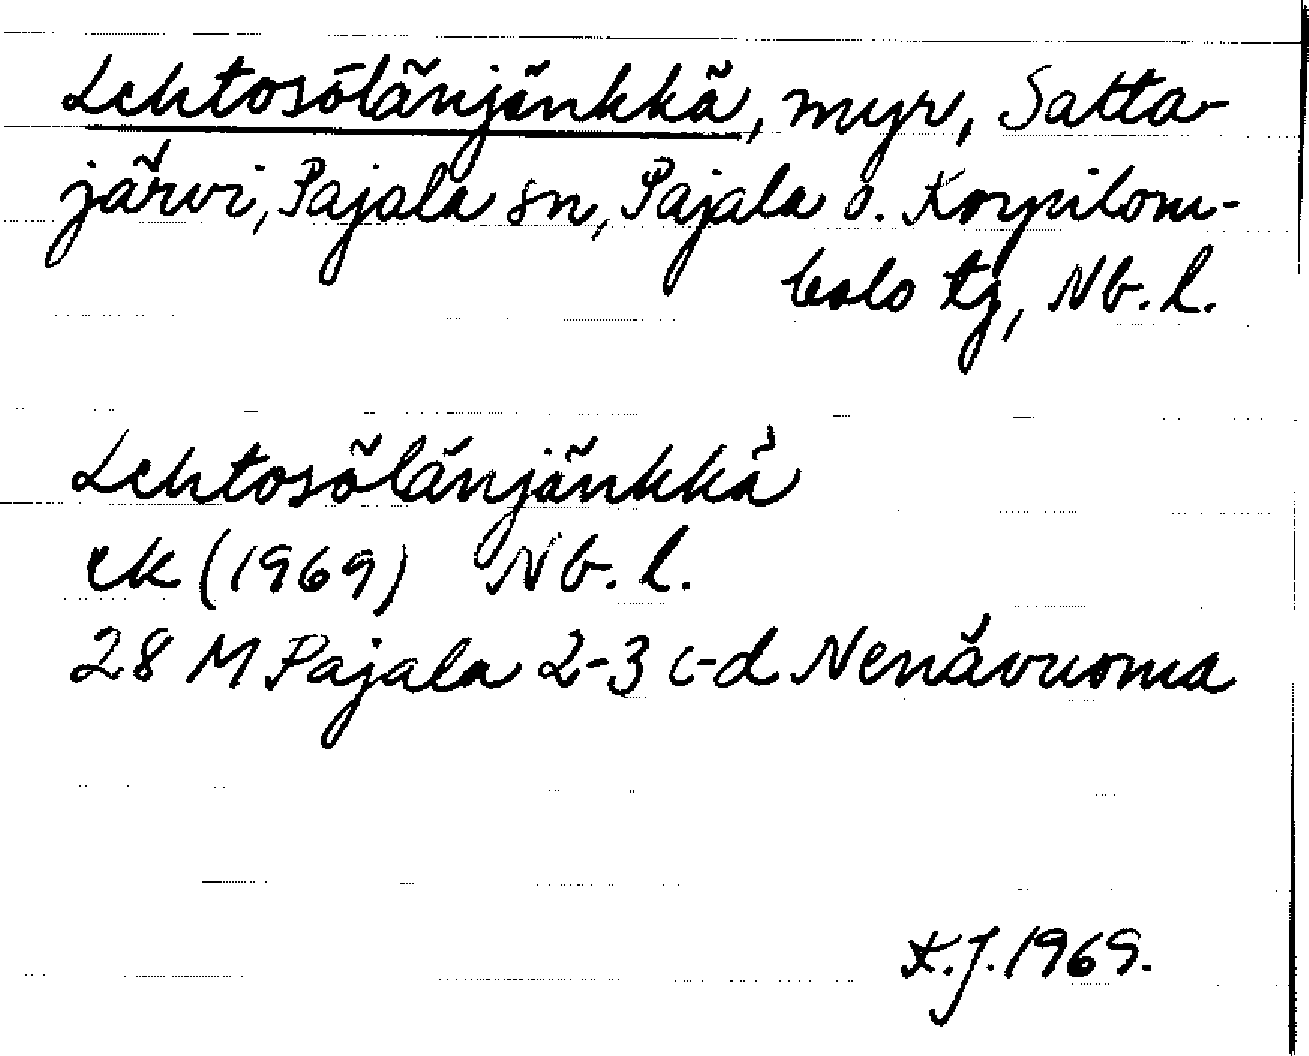 Lehtosölänjänkkä, myr, Satta-
järvi, Pajala sn, Pajala o. Korpilom-
bolo tg, Nb. l.
Lehtosölänjänkkä
ek (1969) Nb. l.
28 M Pajala 2-3 c-d Nenävuoma
K.J. 1969.